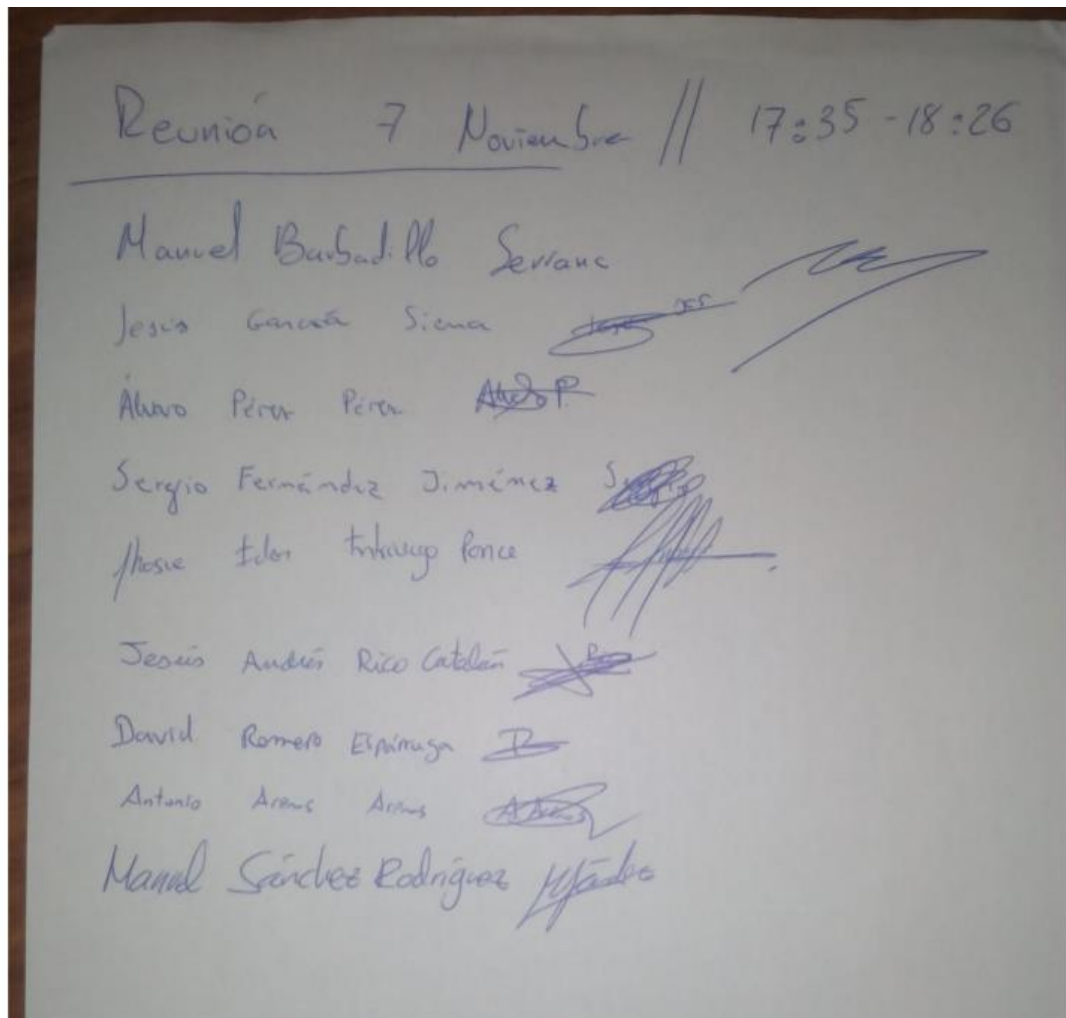 Reunión 7 Noviembre // 17:35 - 18:26
Manuel Barbadillo Serrano
Jesús García Siena
Álvaro Pérez Pérez Álvaro P.
Sergio Fernández Jiménez
Jhosue Ponce
Jesús Andrés Rico Catalán
David Romero Espárraga
Antonio Arenas Arenas
Manuel Sánchez Rodríguez